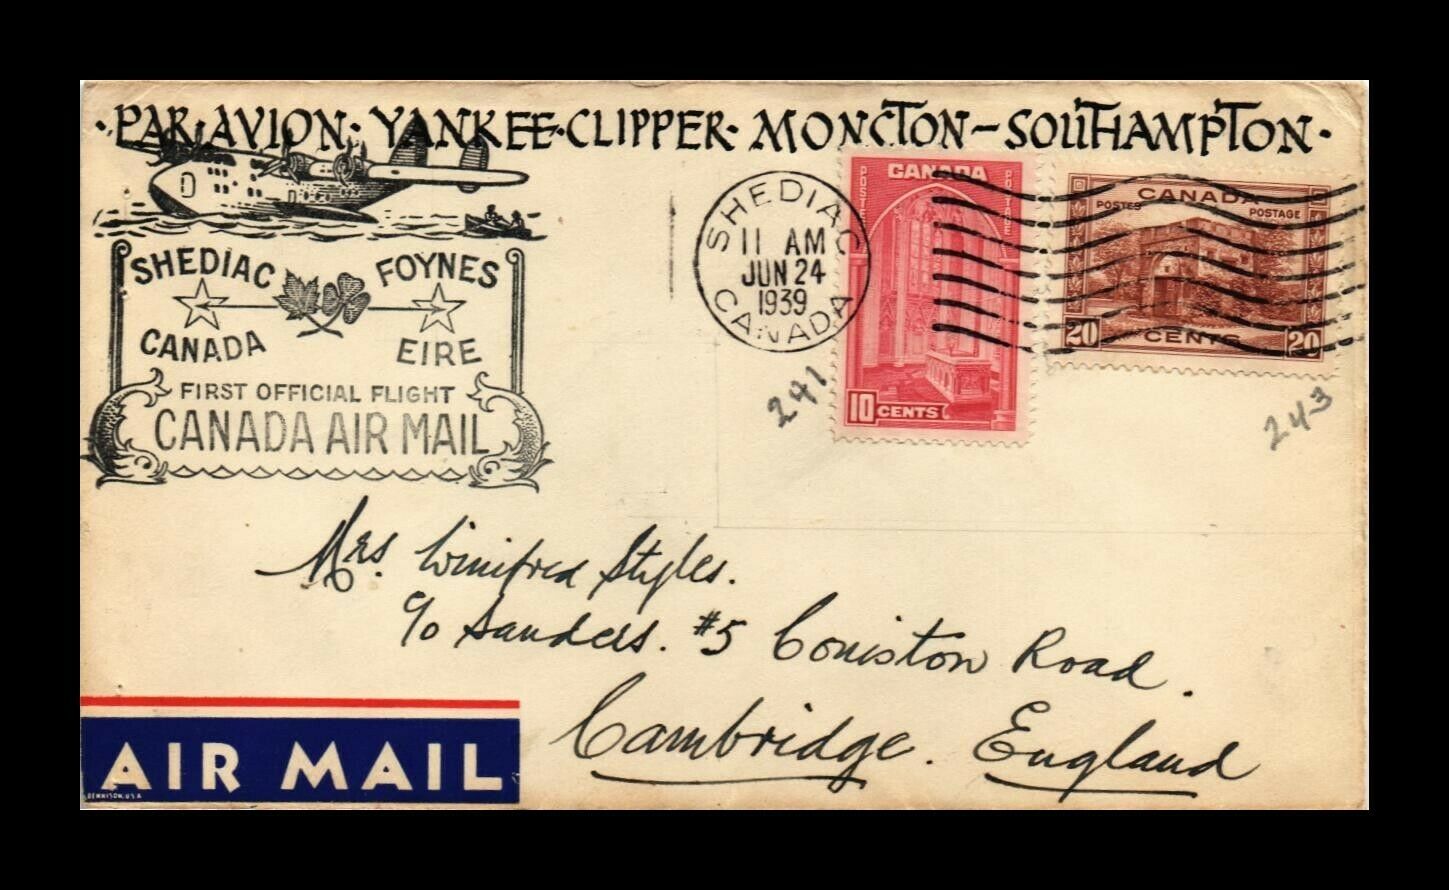 ·PAR·AVION· YANKEE·CLIPPER· MONCTON–SOUTHAMPTON·
SHEDIAC FOYNES
CANADA EIRE
FIRST OFFICIAL FLIGHT
CANADA AIR MAIL
SHEDIAC
11 AM
JUN 24
1939
CANADA
CANADA
POSTES POSTAGE
10 CENTS
CANADA
POSTES POSTAGE
20 CENTS 20
241
243
Mrs. Winifred Styles.
c/o Sanders. #5 Coniston Road.
Cambridge. England
AIR MAIL
DENNISON, U.S.A.